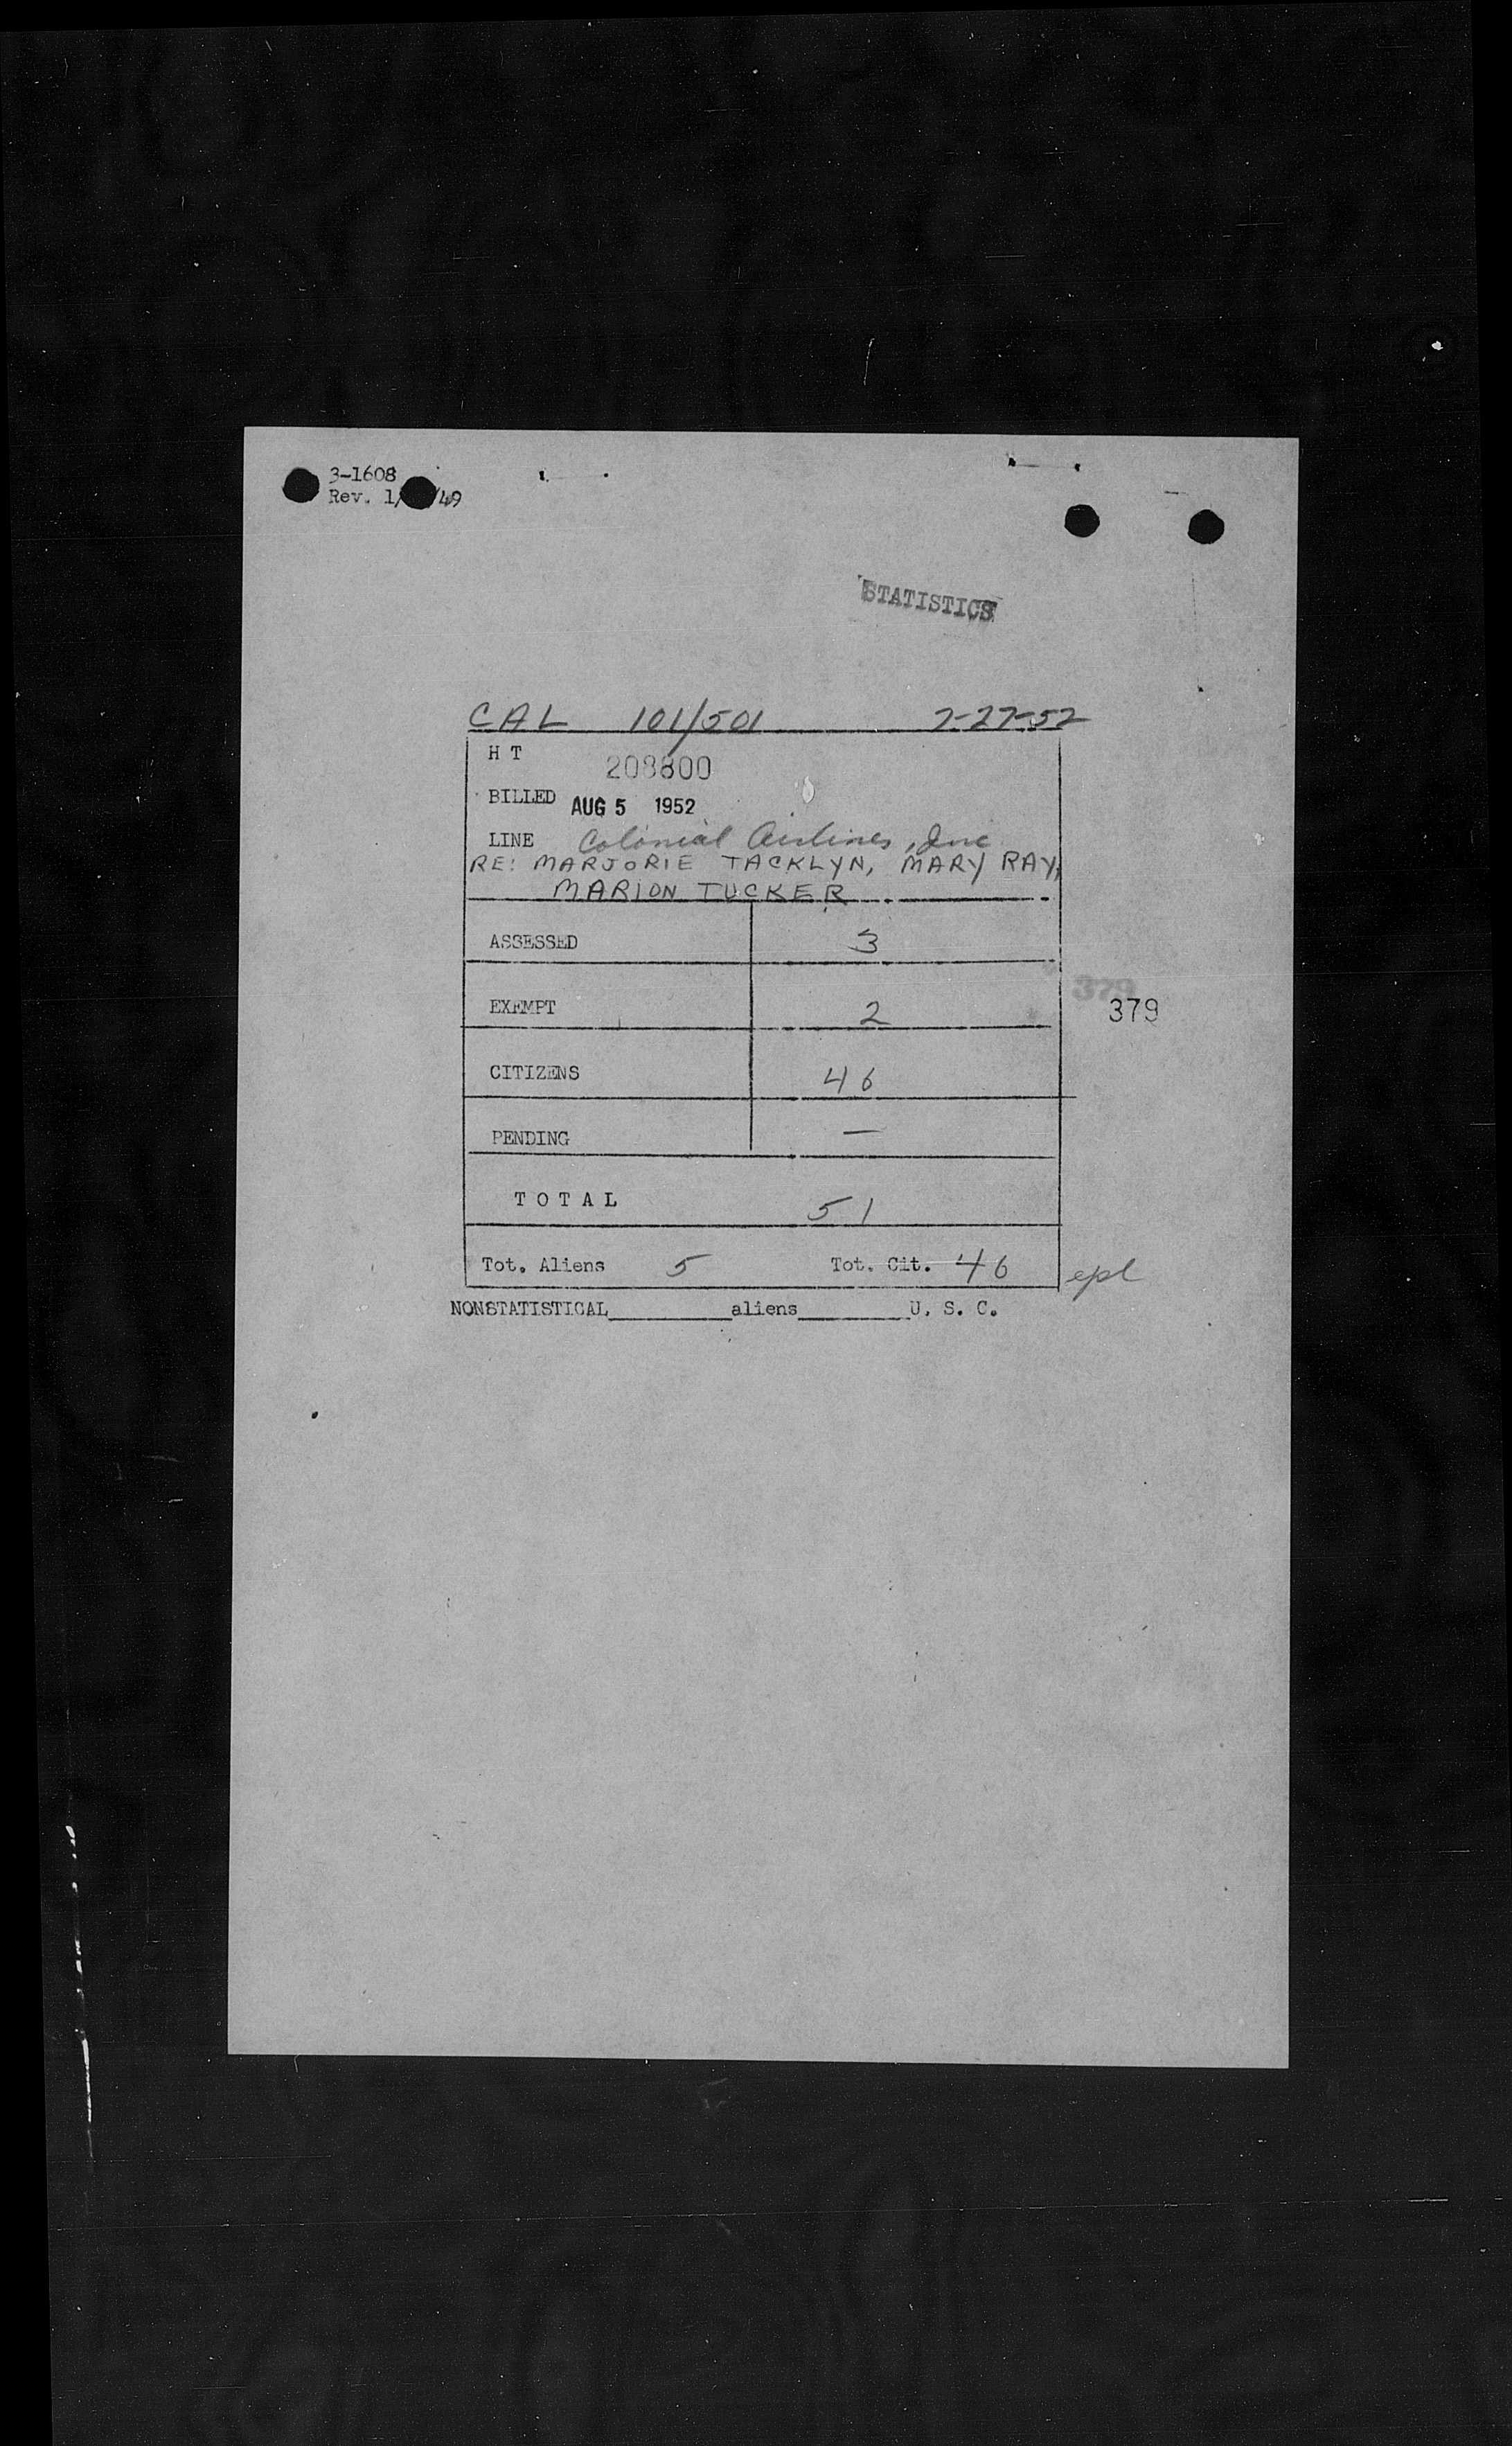 3-1608
Rev. 1/ /49
STATISTICS
CAL 101/501 7-27-52
H T 208800
BILLED AUG 5 1952
LINE Colonial Airlines, Inc
RE: MARJORIE TACKLYN, MARY RAY,
MARION TUCKER
ASSESSED 3
379
EXEMPT 2 379
CITIZENS 46
PENDING —
TOTAL 51
Tot. Aliens 5 Tot. Cit. 46 epl
NONSTATISTICAL________aliens________U. S. C.